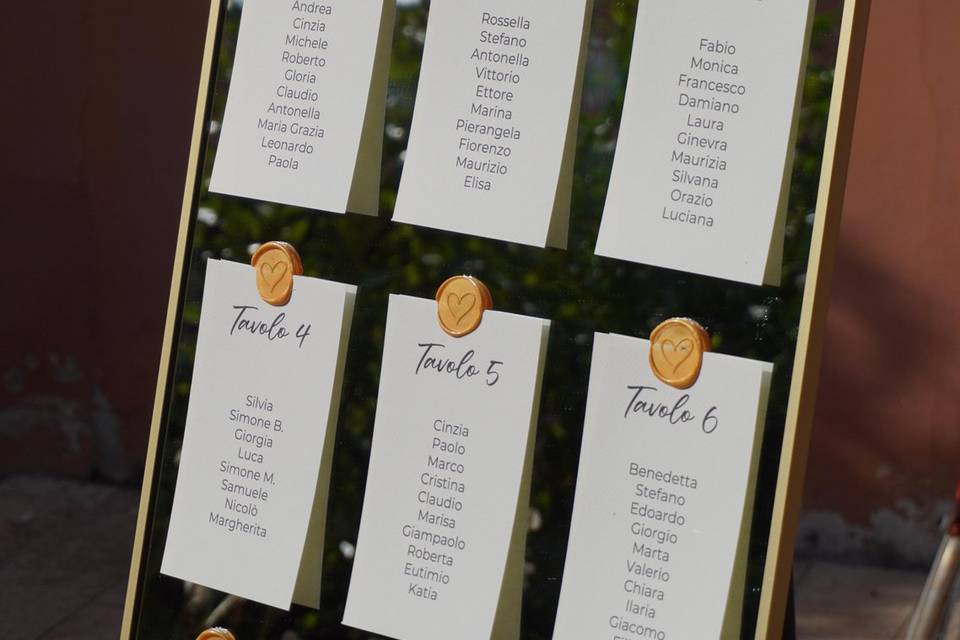 Andrea
Cinzia
Michele
Roberto
Gloria
Claudio
Antonella
Maria Grazia
Leonardo
Paola
Rossella
Stefano
Antonella
Vittorio
Ettore
Marina
Pierangela
Fiorenzo
Maurizio
Elisa
Fabio
Monica
Francesco
Damiano
Laura
Ginevra
Maurizia
Silvana
Orazio
Luciana
Tavolo 4
Silvia
Simone B.
Giorgia
Luca
Simone M.
Samuele
Nicolò
Margherita
Tavolo 5
Cinzia
Paolo
Marco
Cristina
Claudio
Marisa
Giampaolo
Roberta
Eutimio
Katia
Tavolo 6
Benedetta
Stefano
Edoardo
Giorgio
Marta
Valerio
Chiara
Ilaria
Giacomo